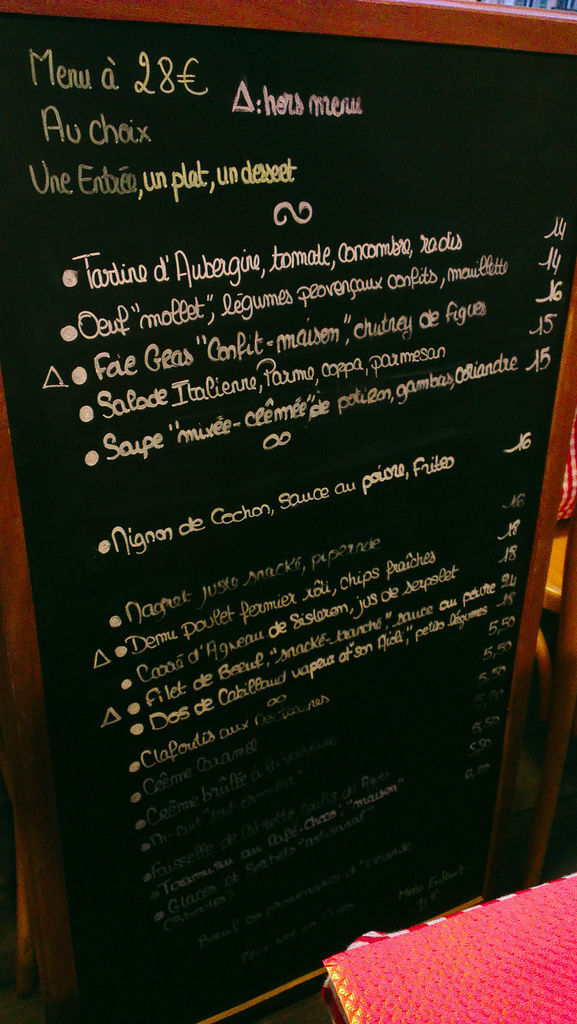 Menu à 28€
Δ: hors menu
Au choix
Une Entrée, un plat, un dessert
• Tartine d'Aubergine, tomate, concombre, radis 14
• Oeuf "mollet", légumes provençaux confits, mouillette 14
Δ • Foie Gras "Confit-maison", chutney de Figues 16
• Salade Italienne, Parme, coppa, parmesan 15
• Soupe "mixée-crêmée" de potiron, gambas, coriandre 15
• Mignon de Cochon, sauce au poivre, Frites 16
• Magret juste snacké, piperade 16
• Demi poulet fermier rôti, chips fraîches 18
Δ • Carré d'Agneau de Sisteron, jus de serpolet 18
• Filet de Boeuf, "snacké-tranché", sauce au poivre 24
Δ • Dos de Cabillaud vapeur et "son Aïoli", petits légumes 18
• Clafoutis aux nectarines 5,50
• Crême Caramel 5,50
• Crême brûlée à la verveine 5,50
• Mi-cuit "tout chocolat" 5,50
• Faisselle de 5,50
• Tiramisu au Café-choco, "maison" 5,50
• Glaces et Sorbets "artisanal" 6,00
Boeuf en provenance d'Irlande
Menu Enfant